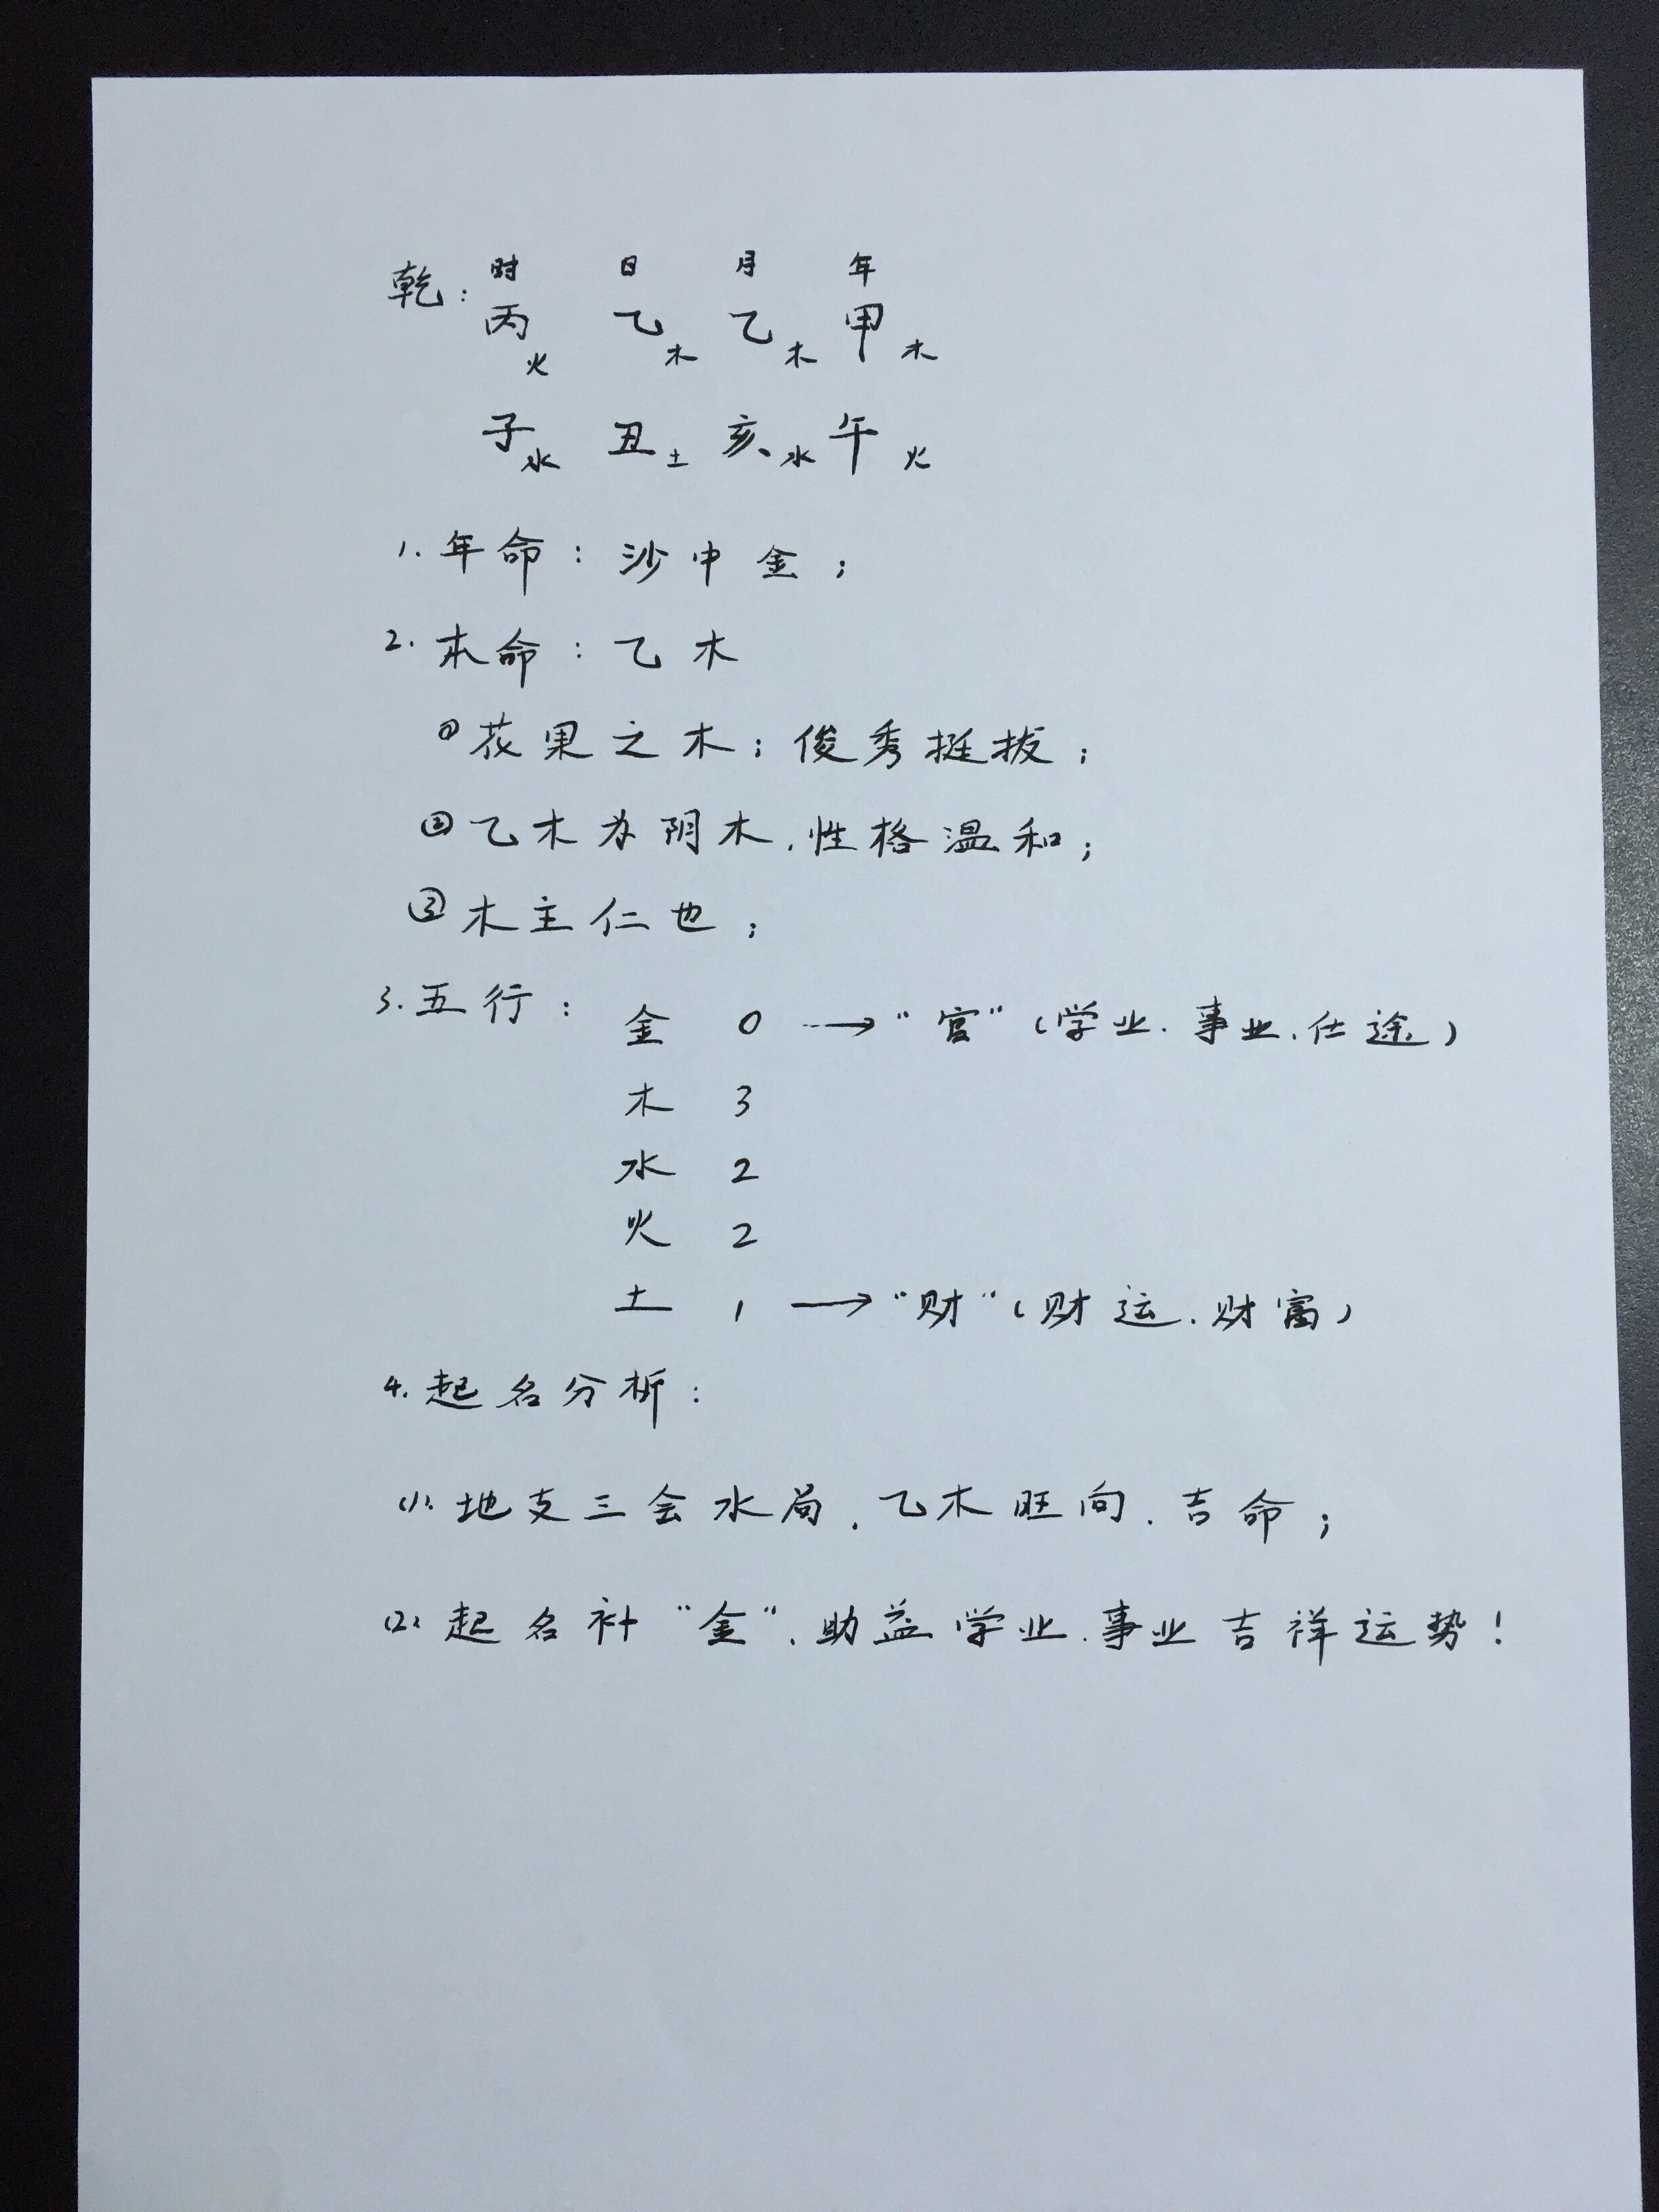 时 日 月 年
乾: 丙火 乙木 乙木 甲木
子水 丑土 亥水 午火
1. 年命: 沙中金;
2. 本命: 乙木
① 花果之木; 俊秀挺拔;
② 乙木为阴木, 性格温和;
③ 木主仁也;
3. 五行: 金 0 → "官" (学业、事业、仕途)
木 3
水 2
火 2
土 1 → "财" (财运、财富)
4. 起名分析:
(1) 地支三会水局, 乙木旺向, 吉命;
(2) 起名补"金", 助益学业、事业吉祥运势!